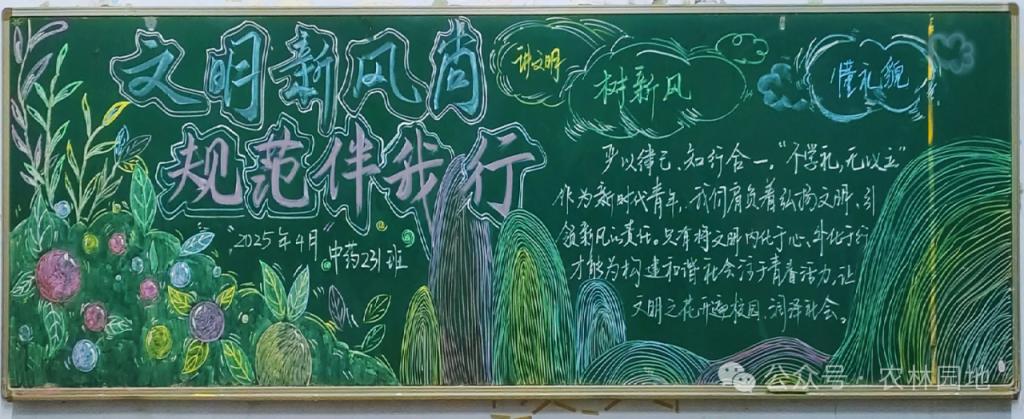 文明新风尚
规范伴我行
"2025年4月"
中药231班
讲文明
树新风
懂礼貌
严以律己、知行合一，"不学礼，无以立"
作为新时代青年，我们肩负着弘扬文明、引
领新风的责任。只有将文明内化于心、外化于行
才能为构建和谐社会注于青春活力，让
文明之花开遍校园、润泽社会。
公众号·农林园地